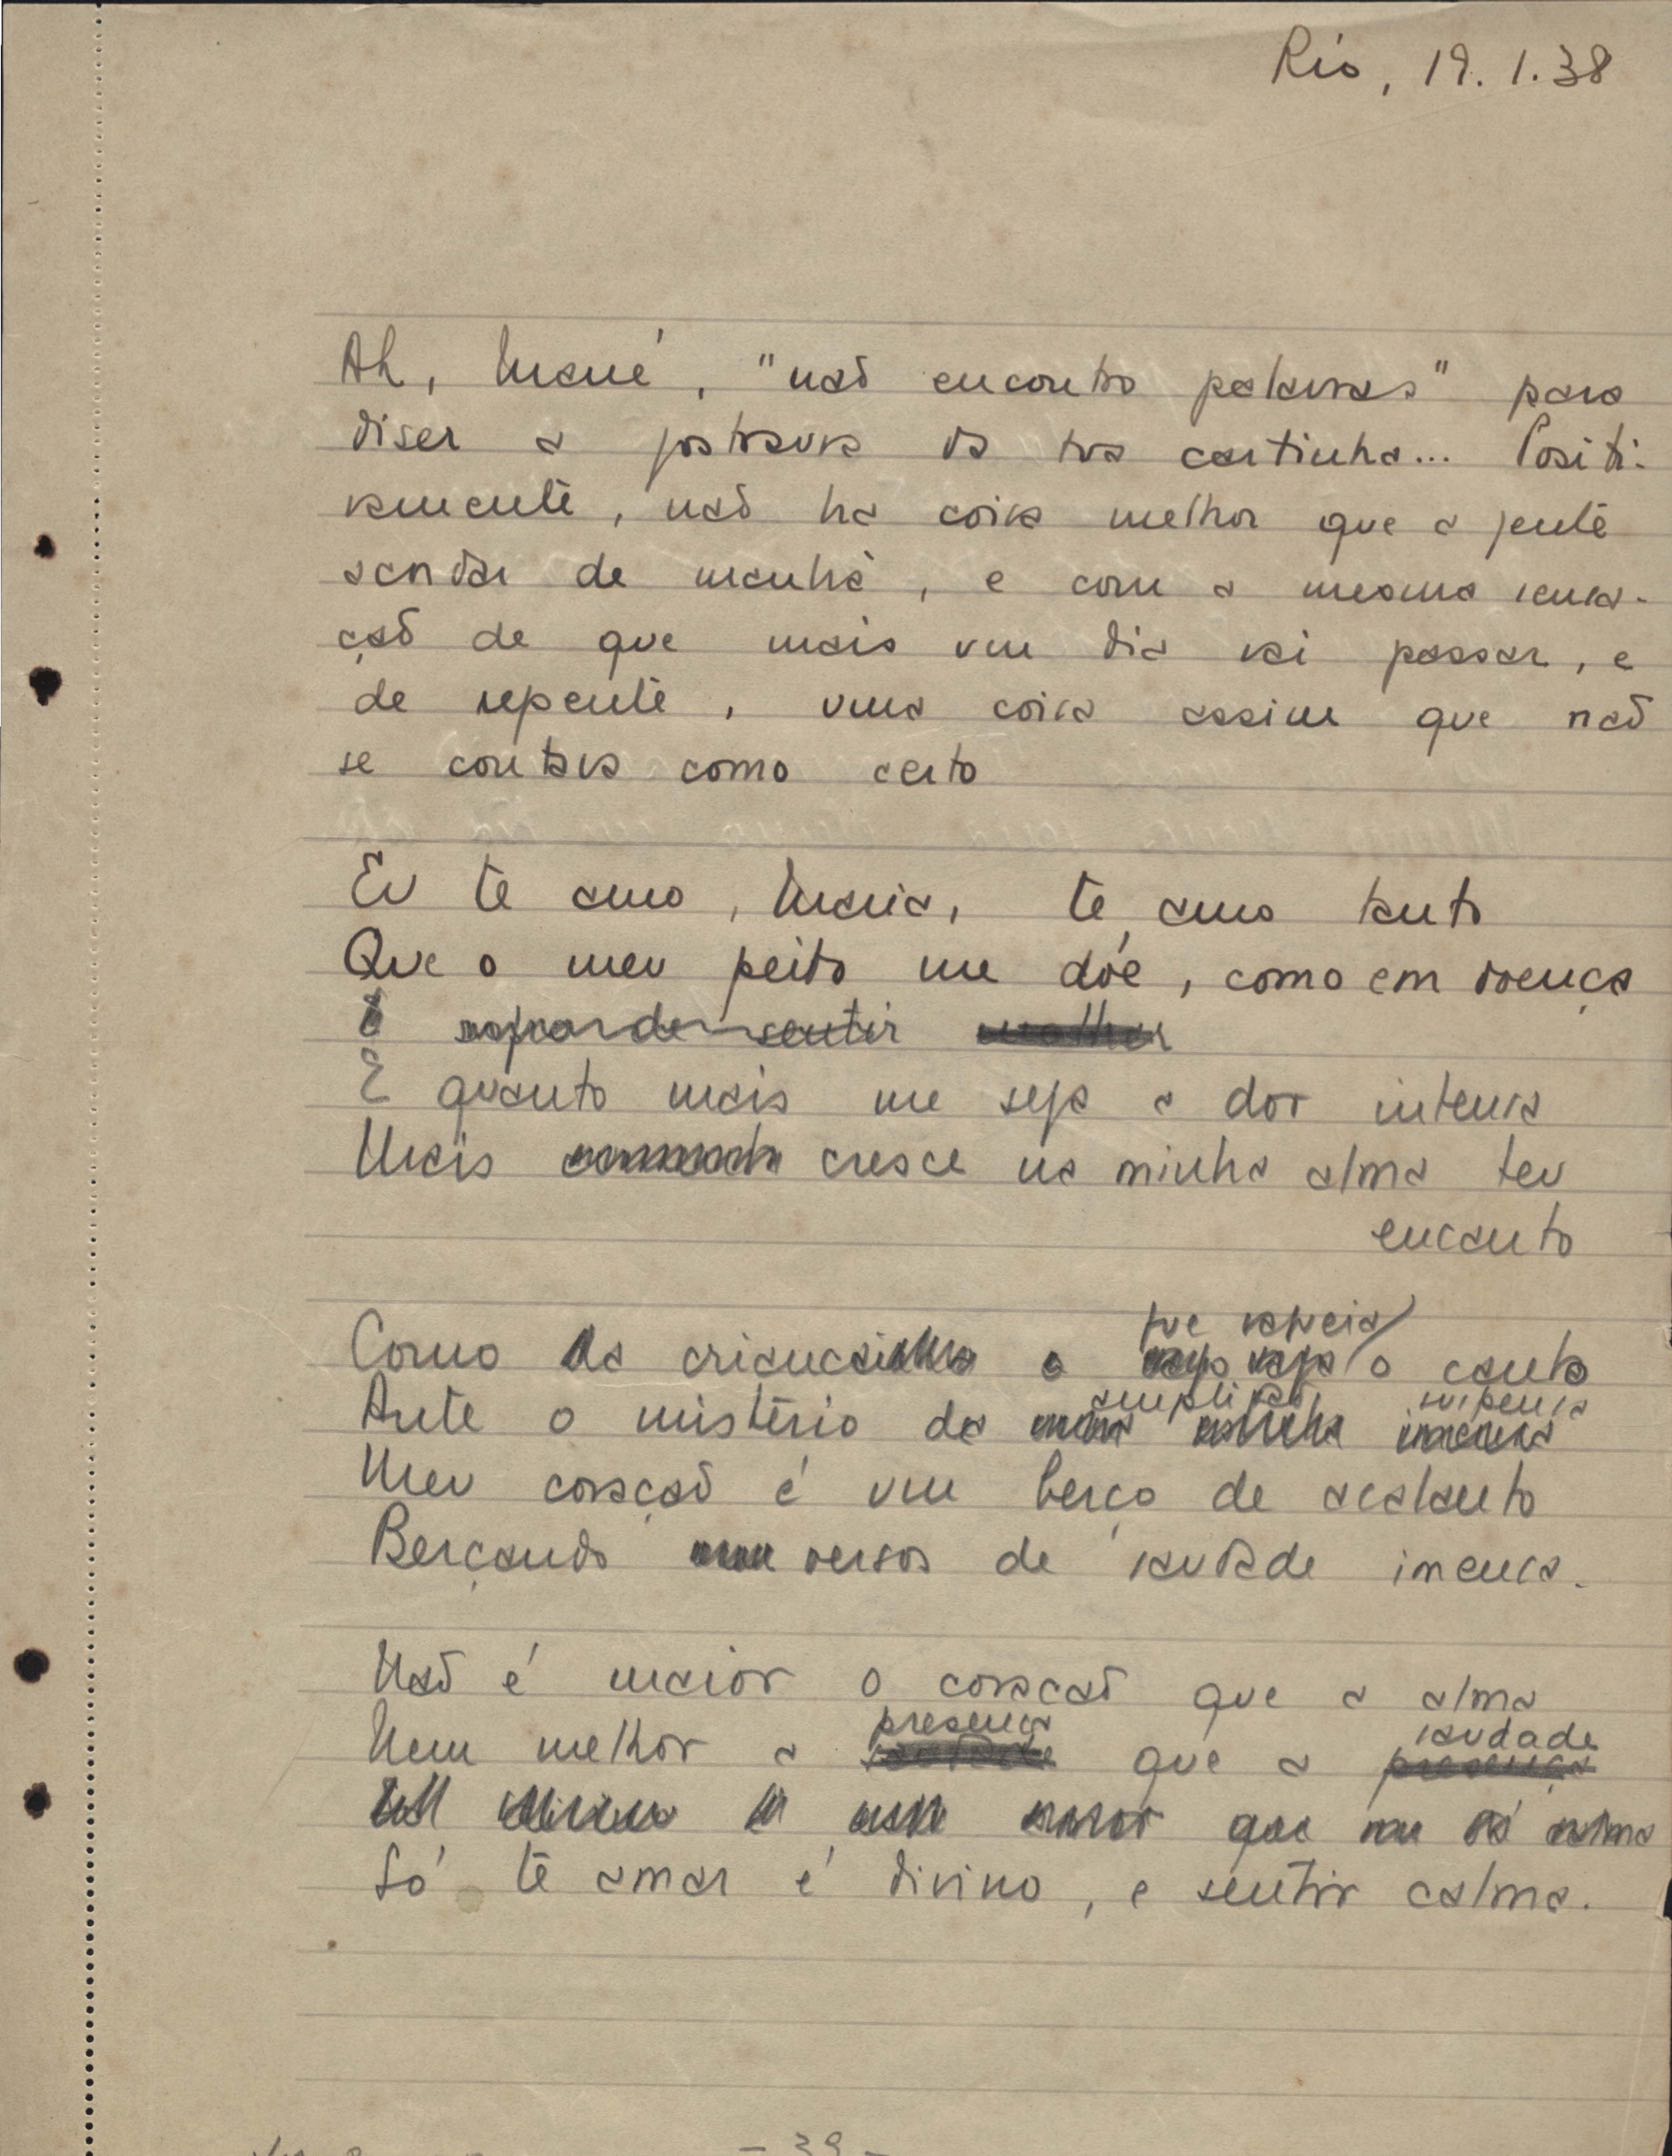 Rio, 19.1.38
Ah, Mané, "não encontro palavras" para
diser a gostosura da tua cartinha... Positi-
vamente, não ha coisa melhor que a gente
acordar de manhã, e com a mesma sensa-
ção de que mais um dia vai passar, e
de repente, uma coisa assim que não
se contava como certo
Eu te amo, Maria, te amo tanto
Que o meu peito me dóe, como em doença
sentir
E quanto mais me seja a dor intensa
Mais cresce na minha alma teu
encanto
que vagueia
Como a criança o canto
amplidão suspensa
Ante o mistério da imensa
Meu coração é um berço de acalanto
Berçando versos de saudade imensa.
Não é maior o coração que a alma
presença saudade
Nem melhor a saudade que a presença
que
Só te amar é divino, e sentir calma.
- 39 -